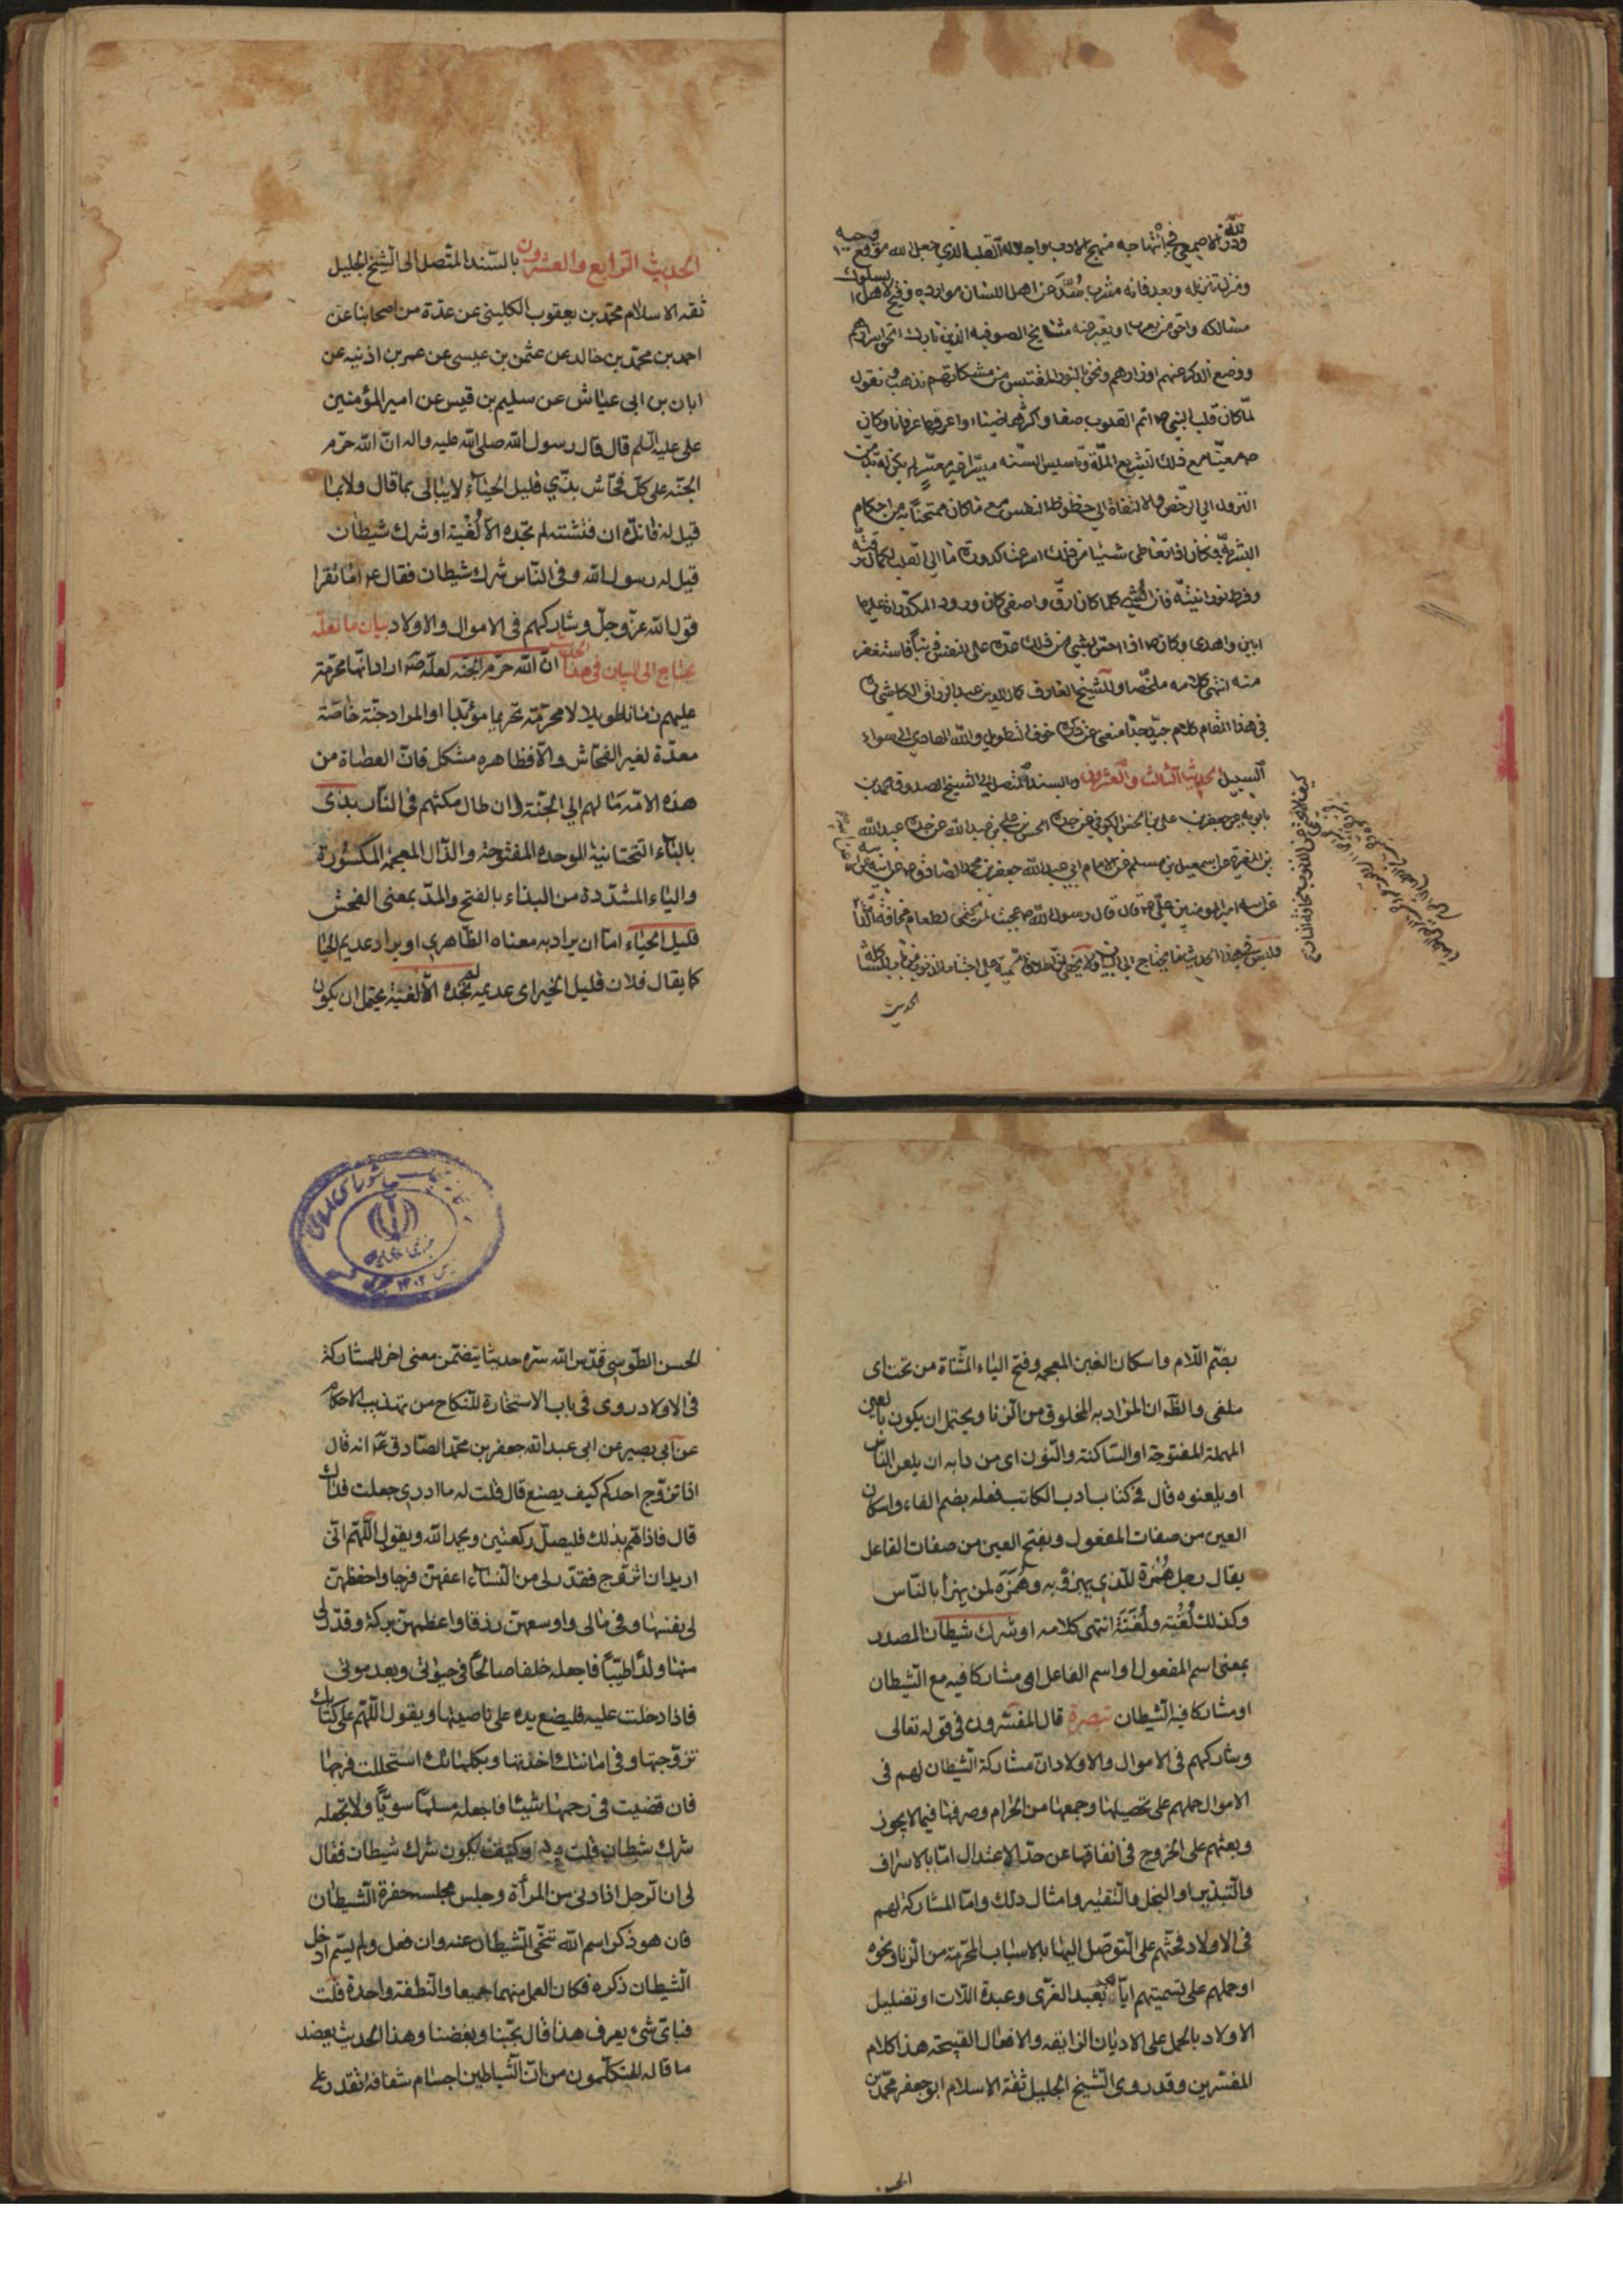 ودر الاصمعي في انتهاجه منهج الادب واجلاله القلب الذي جعل الله موقع وحيه
ومنزل تنزيله وبعد فانه مشرب سُدَّ عن اهل اللسان موارده وفتح لاهل السلوك
مسالكه واحق من يعرب او يعبر عنه مشايخ الصوفيه الذين بارك الحق اسرارهم
ووضع الذكر عنهم اوزارهم ونحن بالنور المقتبس من مشكاتهم نذهب ونقول
لمّا كان قلب النبي ص اتم القلوب صفاء واكثرها ضياء واعرفها عرفانا وكان
ص معيّنا مع ذلك لتشريع الملّة وتاسيس السنّه ميسّرا غير معسّر لم يكن له بد من
النزول الى الرخص والالتفات الى حظوظ النفس مع ما كان ممتحنا به من احكام
البشرية فكان اذا تعاطى شيئا من ذلك اسرعت كدورة ما الى القلب لكمال رقته
وفرط نورانيته فان الشئ كلما كان ارقّ واصفى كان ورود المكدرات عليها
ابين واهدى وكان ص اذا احس بشئ من ذلك عدّه على النفس ذنبا فاستغفر
منه انتهى كلامه ملخّصا وللشيخ العارف كمال الدين عبد الرزاق الكاشي
في هذا المقام كلام جيّد جدّا منعني عن ذكره خوف التطويل والله الهادي الى سواء
السبيل الحديث الثالث والعشرون وبالسند المتصل الى الشيخ الصدوق محمد بن
بابويه عن جعفر بن على بن الحسن الكوفي عن جده الحسن بن علي بن عبد الله عن جده عبد الله
بن المغيرة عن اسمعيل بن مسلم عن الامام ابي عبد الله جعفر بن محمد الصادق ع عن ابيه عن
امير المومنين علي ع قال قال رسول الله ص عجبت لمن يحتمي الطعام مخافة الداء
كيف لا يحتمي من الذنوب مخافة النار
فليس في هذا الحديث ما يحتاج الى البيان
الحديث
الحديث الرابع والعشرون بالسّند المتّصل الى الشيخ الجليل
ثقه الاسلام محمّد بن يعقوب الكليني عن عدّة من اصحابنا عن
احمد بن محمّد بن خالد عن عثمن بن عيسى عن عمر بن اذنيه عن
ابان بن ابى عيّاش عن سليم بن قيس عن امير المؤمنين
على عليه السّلم قال قال رسول الله صلى الله عليه واله انّ الله حرّم
الجنّه على كلّ فحّاش بذّي قليل الحيّاء لا يبالى بما قال ولا بما
قيل له فانّه ان فتّشته لم تجده الّا لُغْيَة او شرك شيطان
قيل له رسول الله وفى النّاس شرك شيطان فقال ع اما تقرا
قول الله عزّ وجلّ وشاركهم فى الاموال والاولاد بيان ما لعلّه
يحتاج الى البيان فى هذا الحديث انّ الله حرّم الجنّه لعلّه ص اراد انّها محرّمة
عليهم زمانا طويلا لا محرّمة تحريما مؤبّدا او المراد جنّة خاصّة
معدّة لغير الفحّاش والّا فظاهره مشكل فانّ العصاة من
هذه الامّه مالهم الى الجنّة وان طال مكثهم فى النّار بذى
بالباء التحتانية الموحده المفتوحة والذّال المعجمه المكسورة
والياء المشدّدة من البذاء بالفتح والمدّ بمعنى الفحش
قليل الحياء امّا ان يراد به معناه الظّاهرى او يراد عديم الحيا
كما يقال فلان قليل الخير اى عديمه لم تجده الّا لغيّة يحتمل ان يكون
بضّم اللّام واسكان الغين المعجمه وفتح الياء المثّناة من تحت اى
ملغى والظّ ان المراد به المخلوق من الزنا ويحتمل ان يكون بالعين
المهملة المفتوحة او السّاكنة والنّون اى من دابه ان يلعن النّاس
او يلعنوه قال فى كتاب ادب الكاتب فعله بضم الفاء واسكان
العين من صفات المفعول وبفتح العين من صفات الفاعل
يقال رجل هُمْزة للّذى يهزؤ به وهُمَزَه لمن يهزأ بالنّاس
وكذلك لُعْنَة ولُعَنَة انتهى كلامه او شرك شيطان المصدر
بمعنى اسم المفعول او اسم الفاعل اى مشاركا فيه مع الشّيطان
او مشاركا فيه الشّيطان تبصرة قال المفسّرون فى قوله تعالى
وشاركهم فى الاموال والاولاد انّ مشاركة الشيطان لهم فى
الاموال حملهم على تحصيلها وجمعها من الحرام وصرفها فيما لا يجوز
وبعثهم على الخروج فى انفاقها عن حدّ الاعتدال امّا بالاسراف
والتّبذير او البخل والتّقتير وامثال ذلك وامّا المشاركة لهم
فى الاولاد فحثّهم على التّوصّل اليها بالاسباب المحرّمة من الزنا ونحوه
او حملهم على تسميتهم ايّاهم بعبد العزّى وعبدة اللّات او تضليل
الاولاد بالحمل على الاديان الزايغه والافعال القبيحة هذا كلام
المفسّرين وقد روى الشّيخ الجليل ثقة الاسلام ابو جعفر محمّد بن
الحسن
الحسن الطّوسى قدّس الله سرّه حديثا يتضمّن معنى اخر للمشاركة
فى الاولاد روى فى باب الاستخارة للنّكاح من تهذيب الاحكام
عن ابى بصير عن ابى عبد الله جعفر بن محمّد الصّادق ع انه قال
اذا تزوّج احدكم كيف يصنع قال قلت له ما ادرى جعلت فداك
قال فاذا همّ بذلك فليصلّ ركعتين ويحمد الله ويقول اللّهمّ انّى
اريد ان اتزوّج فقدّر لى من النّساء اعفهنّ فرجا واحفظهنّ
لى نفسها وفى مالى واوسعهنّ رزقا واعظمهنّ بركة وقدّر لى
منها ولدًا طيّبًا فاجعله خلفا صالحًا فى حيوتى وبعد موتى
فاذا دخلت عليه فليضع يده على ناصيتها ويقول اللّهمّ على كتابك
تزوّجتها وفى امانتك اخذتها وبكلماتك استحللت فرجها
فان قضيت فى رحمها شيئا فاجعله مسلما سويّا ولا تجعله
شرك شيطان قلت وكيف يكون شرك شيطان فقال
لى ان الرّجل اذا دنى من المرأة وجلس مجلسه حضره الشّيطان
فان هو ذكر اسم الله تنحّى الشّيطان عنه وان فعل ولم يسمّ ادخل
الشّيطان ذكره فكان العمل منهما جميعا والنّطفة واحدة قلت
فباىّ شئ يعرف هذا قال بحّبنا وبغضنا وهذا الحديث يعضد
ما قاله المتكلّمون من انّ الشّياطين اجسام شفافه تقدر على